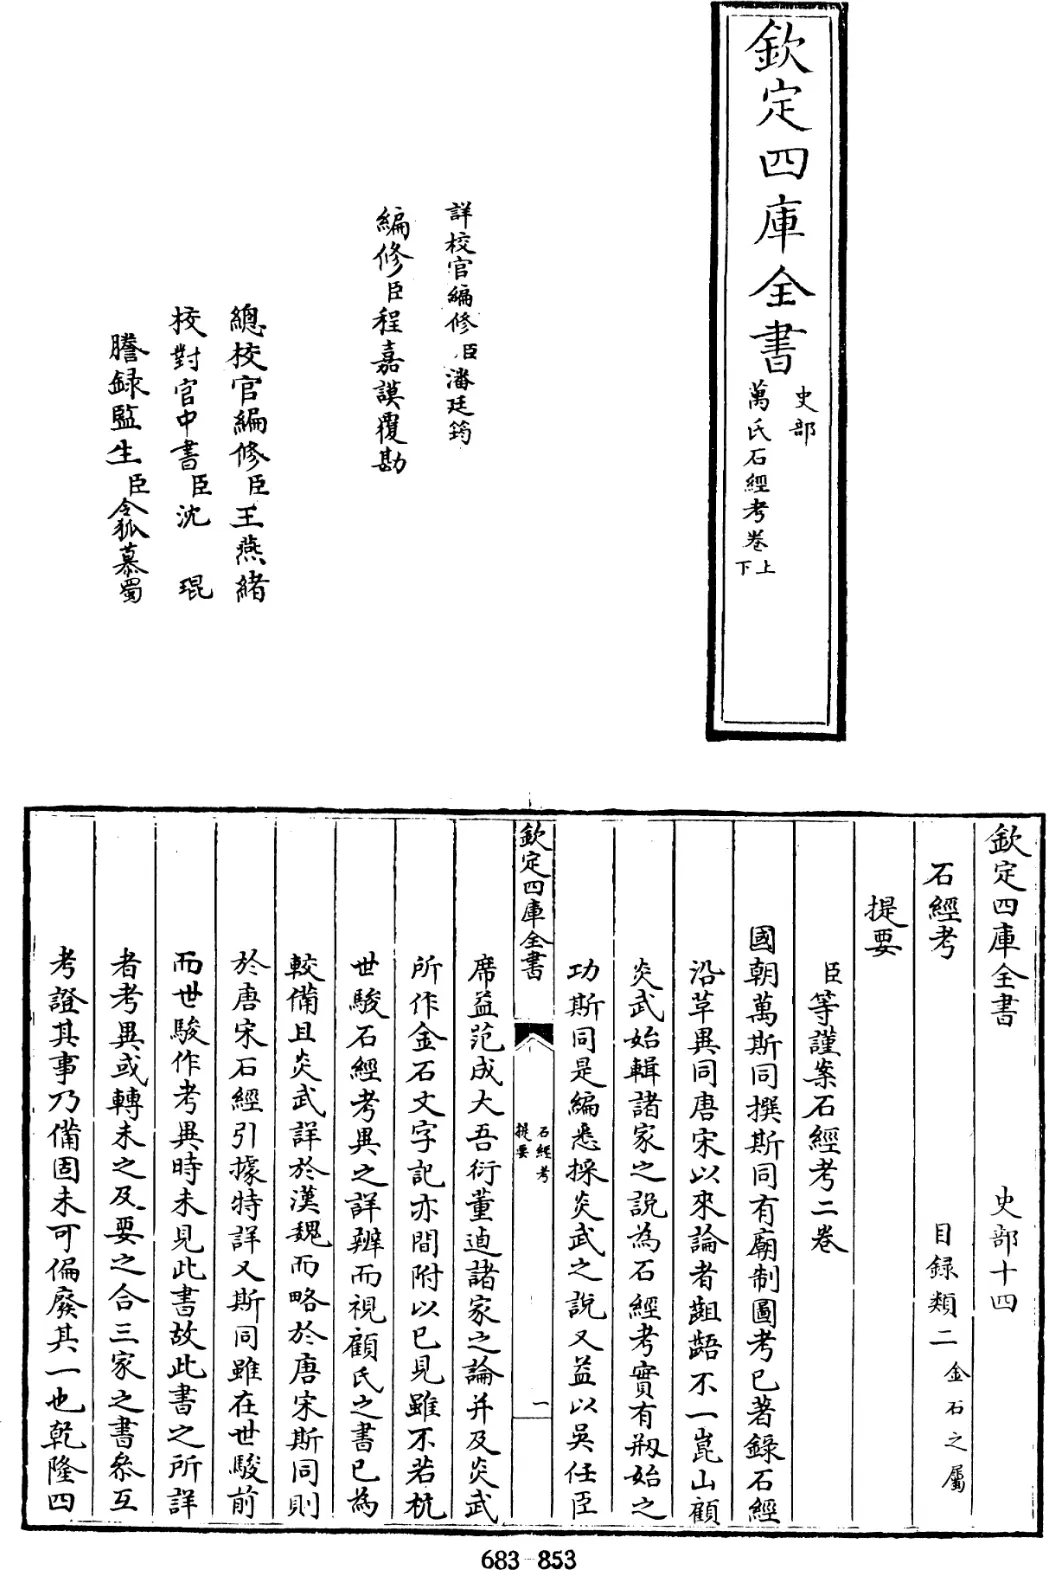 欽定四庫全書
史部
萬氏石經考卷上下
詳校官編修臣潘廷筠
編修臣程嘉謨覆勘
總校官編修臣王燕緒
校對官中書臣沈琨
謄録監生臣令狐慕蜀
欽定四庫全書 史部十四
石經考 目録類二金石之屬
提要
臣等謹案石經考二卷
國朝萬斯同撰斯同有廟制圖考已著錄石經
沿革異同唐宋以來論者齟齬不一崑山顧
炎武始輯諸家之説為石經考實有剏始之
功斯同是編悉採炎武之説又益以吳任臣
欽定四庫全書
石經考
提要
一
席益范成大吾衍董逌諸家之論并及炎武
所作金石文字記亦間附以己見雖不若杭
世駿石經考異之詳辨而視顧氏之書已為
較備且炎武詳於漢魏而略於唐宋斯同則
於唐宋石經引據特詳又斯同雖在世駿前
而世駿作考異時未見此書故此書之所詳
者考異或轉未之及要之合三家之書叅互
考證其事乃備固未可偏廢其一也乾隆四
683-853